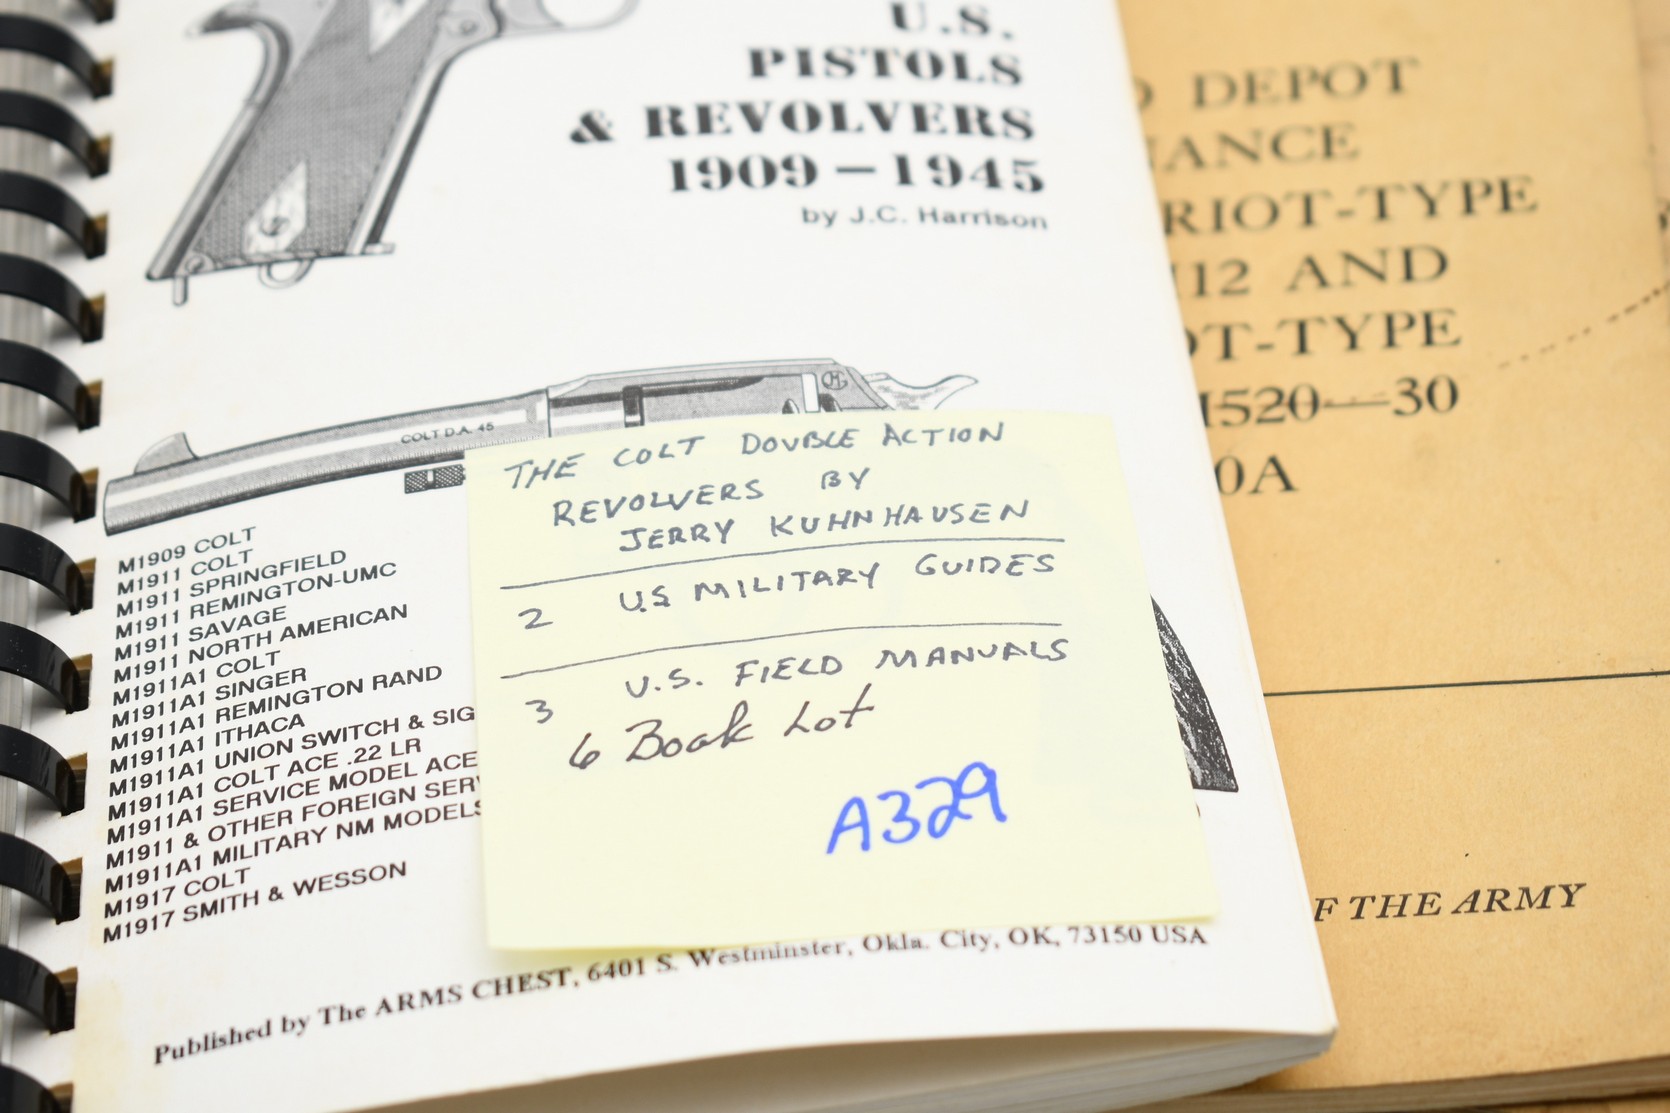 U.S.
PISTOLS
& REVOLVERS
1909 – 1945
by J.C. Harrison
COLT D.A. 45
M1909 COLT
M1911 COLT
M1911 SPRINGFIELD
M1911 REMINGTON-UMC
M1911 SAVAGE
M1911 NORTH AMERICAN
M1911A1 COLT
M1911A1 SINGER
M1911A1 REMINGTON RAND
M1911A1 ITHACA
M1911A1 UNION SWITCH & SIG
M1911A1 COLT ACE .22 LR
M1911A1 SERVICE MODEL ACE
M1911 & OTHER FOREIGN SER
M1911A1 MILITARY NM MODELS
M1917 COLT
M1917 SMITH & WESSON
Published by The ARMS CHEST, 6401 S. Westminster, Okla. City, OK, 73150 USA
THE COLT DOUBLE ACTION
REVOLVERS BY
JERRY KUHNHAUSEN
2 U.S MILITARY GUIDES
3 U.S. FIELD MANUALS
6 Book Lot
A329
DEPOT
NANCE
RIOT-TYPE
12 AND
OT-TYPE
1520—30
0A
F THE ARMY